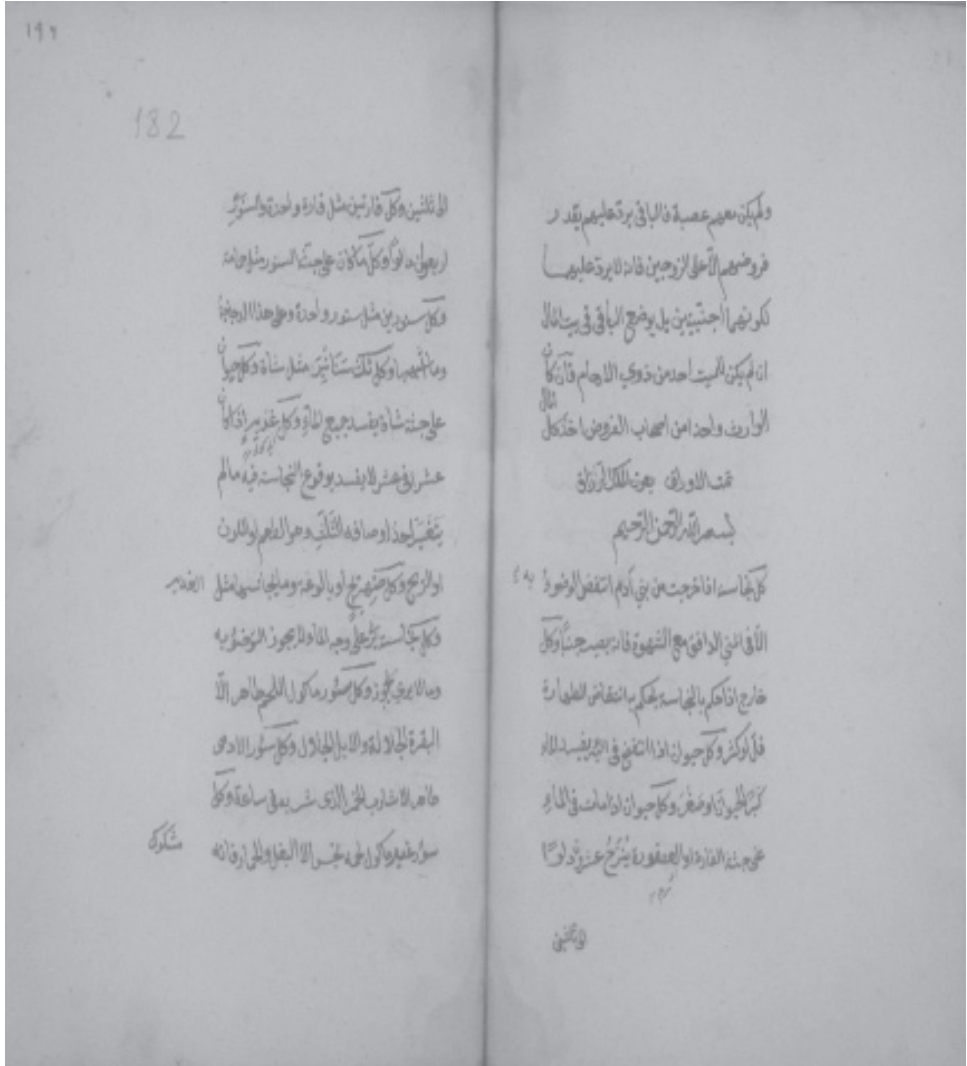 ولم يكن معهم عصبة فالباقي يرد عليهم بقدر
فروضهم الا على الزوجين فانه لا يرد عليهما
لكونهما اجنبيين بل يوضع الباقي في بيت المال
ان لم يكن للميت احد من ذوي الارحام فان كان
الوارث واحدا من اصحاب الفروض اخذ كل المال
تمت الاوراق بعون الملك الرزاق
بسم الله الرحمن الرحيم
كل نجاسة اذا خرجت من بني آدم انتقض الوضوء به
الا في المني الدافق مع الشهوة فانه يصير جنبا وكل
خارج اذا حكم بالنجاسة يحكم بانتقاض الطهارة
قل او كثر وكل حيوان اذا انتفخ في البئر يفسد الماء
كبر الحيوان او صغر وكل حيوان اذا مات في الماء
على جثة الفارة او العصفورة ينزح عشرون دلوا
الى ثلثين
١٩٦
182
الى ثلثين وكل فارتين مثل فارة واحدة والسنور
اربعون دلوا وكل ما كان على جثة السنور مثل حمامة
وكل سنورين مثل سنور واحدة وعلى هذا الدجاجة
وما اشبهها وكل ثلث سنانير مثل شاة وكل حيوان
على جثة شاة يفسد جميع الماء وكل غدير اذا كان
عشرا في عشر لا يفسد بوقوع النجاسة فيه ما لم
يتغير احد اوصافه الثلث وهو الطعم او اللون
او الريح وكل حوض او بالوعة وما يجانسهما مثل الغدير
وكل نجاسة يرى على وجه الماء لا يجوز التوضؤ به
وما لا يرى يجوز وكل سؤر ماكول اللحم طاهر الا
البقرة الجلالة والابل الجلال وكل سؤر الادمي
طاهر الا شارب الخمر الذي شربه في ساعة وكل
سؤر غير ماكول لحمه نجس الا البغل والحمار فانه مشكوك